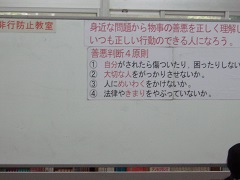 非行防止教室
身近な問題から物事の善悪を正しく理解し
いつも正しい行動のできる人になろう。
善悪判断４原則
① 自分がされたら傷ついたり、困ったりしない
② 大切な人をがっかりさせないか。
③ 人にめいわくをかけないか。
④ 法律やきまりをやぶっていないか。